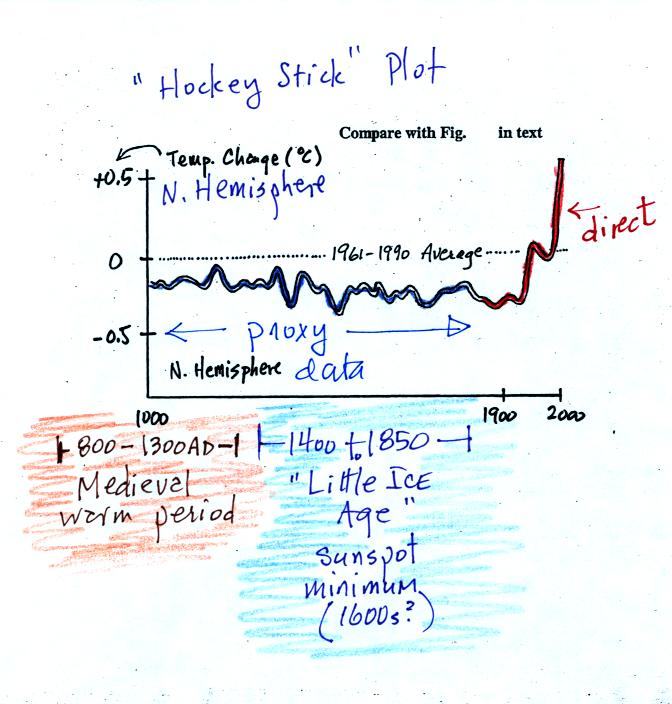 "Hockey Stick" Plot
Compare with Fig. in text
Temp. Change (°C)
+0.5
N. Hemisphere
direct
1961-1990 Average
0
-0.5
proxy
N. Hemisphere data
1000 1900 2000
800-1300AD
1400 to 1850
Medieval
warm period
"Little Ice
Age"
sunspot
minimum
(1600s?)